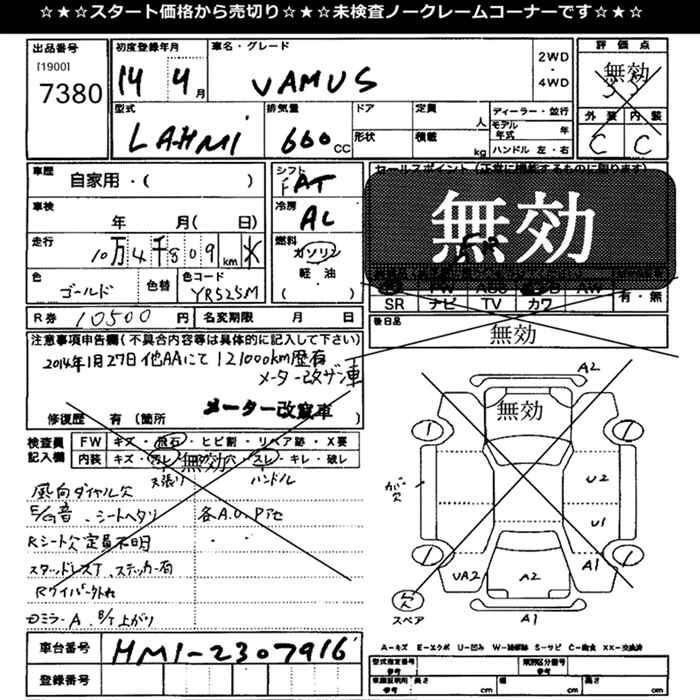 ☆★☆スタート価格から売切り☆★☆未検査ノークレームコーナーです☆★☆
出品番号
[1900]
7380
初度登録年月
14 4月
車名・グレード
VAMUS
2WD
・
4WD
評価点
無効
外装 内装
C C
型式
LAHM1
排気量
660 CC
ドア
形状
定員 人
積載 kg
ディーラー・並行
モデル年式 年
ハンドル 左・右
車歴
自家用・( )
シフト
FAT
セールスポイント(正常に機能するものに限ります)
無効
車検
年 月( 日)
冷房
AC
走行
10万4千809km
燃料
ガソリン
軽油
( )
色
ゴールド
色替
色コード
YR525M
SR ナビ TV カワ
有・無
R券 10500円
名変期限 月 日
後日品
無効
注意事項申告欄(不具合内容等は具体的に記入して下さい)
2014年1月27日他AAにて121000km歴有
メーター改ザン車
メーター改竄車
修復歴 有(箇所
検査員記入欄
FW キズ・飛石・ヒビ割・リペア跡・X要
内装 キズ・汚レ 無効 穴・スレ・キレ・破レ
天張り ハンドル
風向ダイヤル欠
E/G音、シートヘタリ 各A.U.Pアセ
Rシート欠 定員不明
スタッドレスT、ステッカー有
Rワイパー外れ
Dミラー A、B/T上がり
車台番号
HM1-2307916
登録番号
無効
A2
ガ欠
U2
U1
A1
UA2
A2
欠
スペア
A1
A-キズ E-エクボ U-凹み W-補修跡 S-サビ C-腐食 XX-交換済
型式指定番号
参考
類別区分番号
参考
車庫証明用
参考
長さ cm
幅 cm
高さ cm